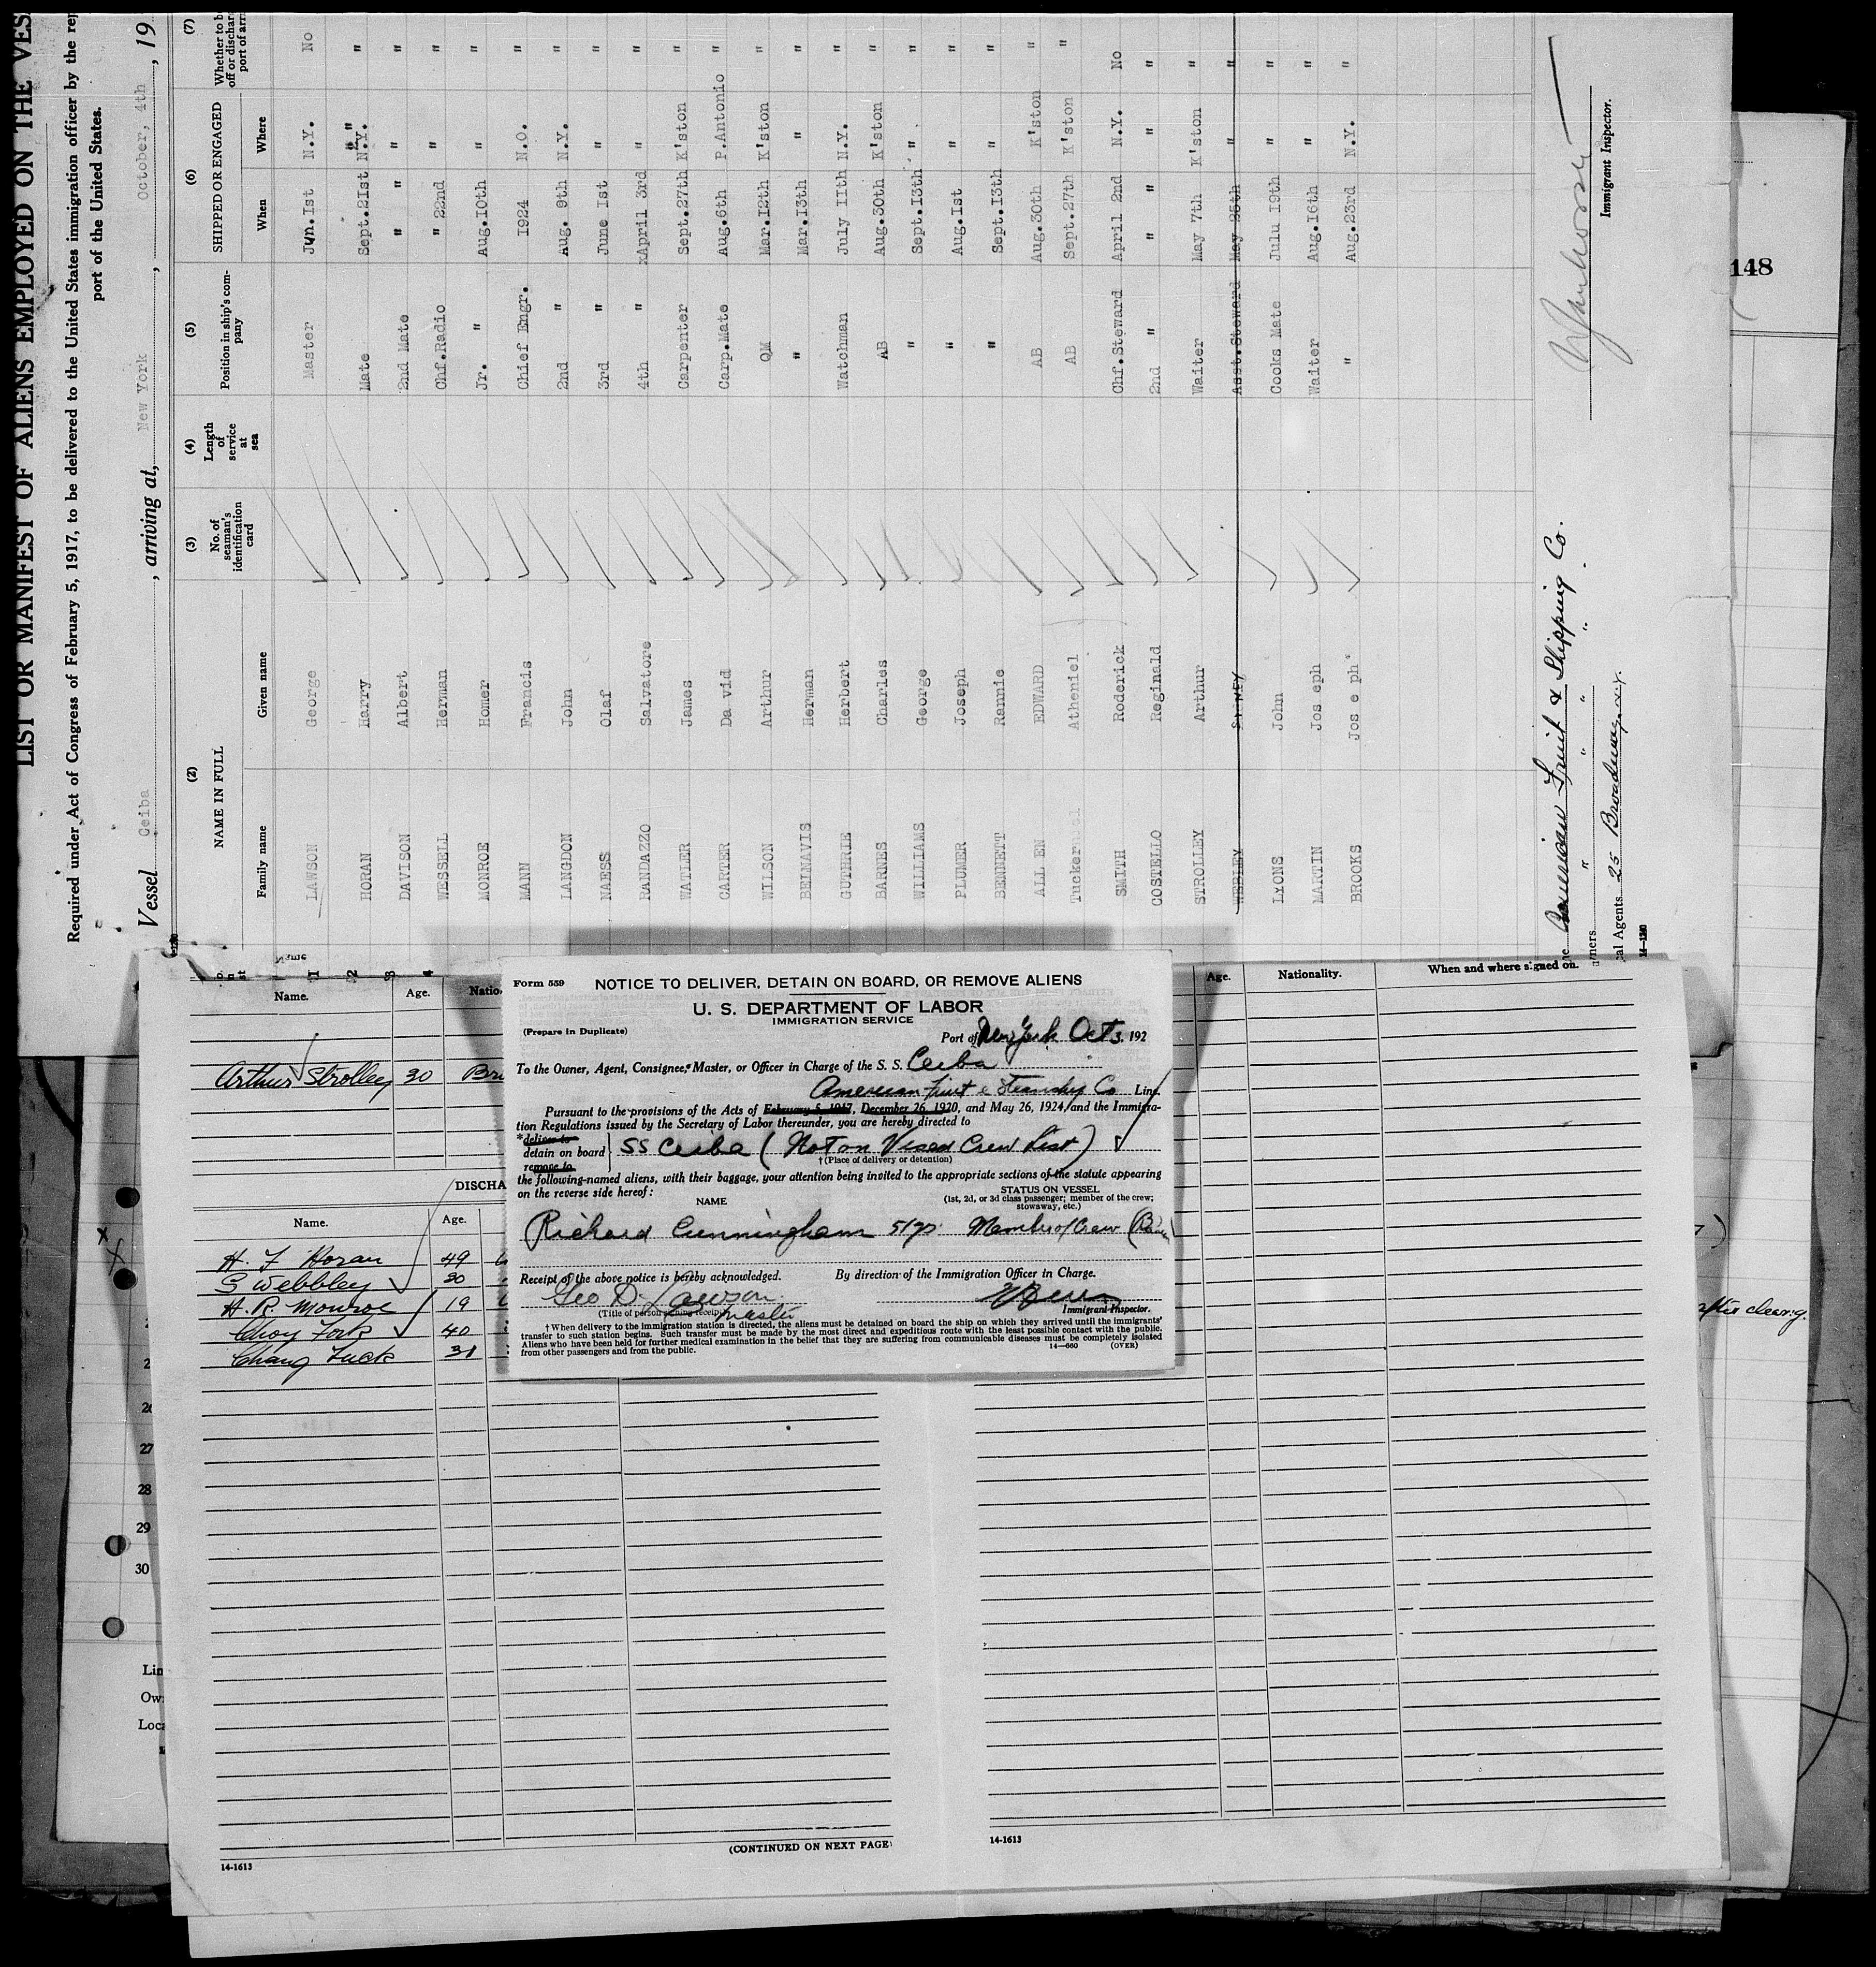 LIST OR MANIFEST OF ALIENS EMPLOYED ON THE VES
Required under Act of Congress of February 5, 1917, to be delivered to the United States immigration officer by the rep
port of the United States.
Vessel Ceiba, arriving at, New York, October, 4th, 19
(2) NAME IN FULL (3) No. of seaman's identification card (4) Length of service at sea (5) Position in ship's company (6) SHIPPED OR ENGAGED (7) Whether to b off or dischar port of arri
Family name Given name When Where
LAWSON George Master Jun.1st N.Y. No
HORAN Harry Mate Sept.21st N.Y. "
DAVISON Albert 2nd Mate " " " "
WESSELL Herman Chf.Radio " 22nd " "
MONROE Homer Jr. " Aug.10th " "
MANN Francis Chief Engr. 1924 N.O. "
LANGDON John 2nd " Aug. 9th N.Y. "
NAESS Olaf 3rd " June 1st " "
RANDAZZO Salvatore 4th " xApril 3rd " "
WATLER James Carpenter Sept.27th K'ston "
CARTER David Carp.Mate Aug.6th P.Antonio "
WILSON Arthur QM Mar.12th K'ston "
BELNAVIS Herman " Mar.13th " "
GUTHRIE Herbert Watchman July 11th N.Y. "
BARNES Charles AB Aug.30th K'ston "
WILLIAMS George " Sept.13th " "
PLUMER Joseph " Aug.1st " "
BENNETT Rannie " Sept.13th " "
ALLEN EDWARD AB Aug.30th K'ston "
Tucker Atheniel AB Sept.27th K'ston "
SMITH Roderick Chf.Steward April 2nd N.Y. No
COSTELLO Reginald 2nd " " " " "
STROLLEY Arthur Waiter May 7th K'ston "
WEBLEY SYDNEY Asst.Steward May 25th " "
LYONS John Cooks Mate Julu 19th " "
MARTIN Jos eph Waiter Aug.16th " "
BROOKS Jos e ph " Aug.23rd N.Y. "
American Fruit & Shipping Co.
wners " " " "
al Agents 25 Broadway. N.Y.
14-1240
Immigrant Inspector.
148
Name. Age. Natio
Arthur Strolley 30 Bri
DISCHA
Name. Age.
H. F Horan 49
S Webbley 30
H. R. Monroe 19
Choy Fork 40
Chang Luck 31
Age. Nationality. When and where signed on.
Form 559 NOTICE TO DELIVER, DETAIN ON BOARD, OR REMOVE ALIENS
U. S. DEPARTMENT OF LABOR
IMMIGRATION SERVICE
(Prepare in Duplicate)
Port of New York Oct 3, 192
To the Owner, Agent, Consignee,* Master, or Officer in Charge of the S. S. Ceiba
American Fruit & Steamship Co Line
Pursuant to the provisions of the Acts of February 5, 1917, December 26, 1920, and May 26, 1924, and the Immigra-
tion Regulations issued by the Secretary of Labor thereunder, you are hereby directed to
*deliver to
detain on board SS Ceiba (Not on Visaed Crew List)
remove to
†(Place of delivery or detention)
the following-named aliens, with their baggage, your attention being invited to the appropriate sections of the statute appearing
on the reverse side hereof:
NAME
STATUS ON VESSEL
(1st, 2d, or 3d class passenger; member of the crew;
stowaway, etc.)
Richard Cunningham 51 yrs Member of Crew
Receipt of the above notice is hereby acknowledged. By direction of the Immigration Officer in Charge.
Geo D. Lawson
(Title of person signing receipt) Master
Immigrant Inspector.
†When delivery to the immigration station is directed, the aliens must be detained on board the ship on which they arrived until the immigrants'
transfer to such station begins. Such transfer must be made by the most direct and expeditious route with the least possible contact with the public.
Aliens who have been held for further medical examination in the belief that they are suffering from communicable diseases must be completely isolated
from other passengers and from the public.
14—660 (OVER)
after clearing.
26
27
28
29
30
Lin
Own
Loca
(CONTINUED ON NEXT PAGE)
14-1613
14-1613